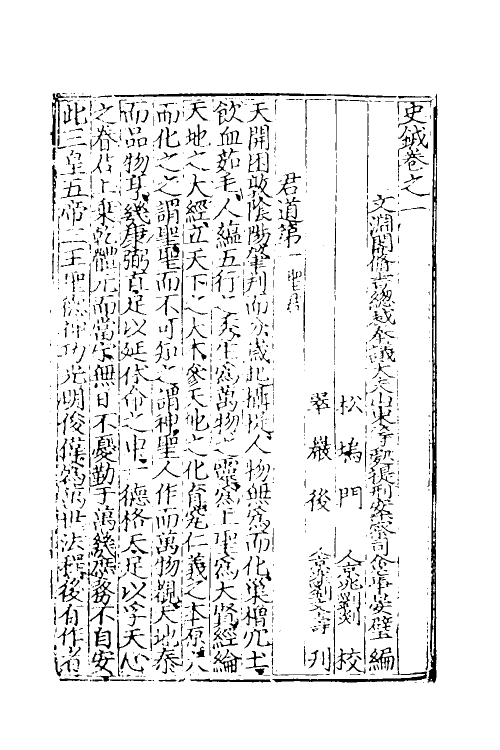 史鉞卷之一
文淵閣脩書總裁奉議大夫山東等處提刑按察司僉事晏璧 編
松塢門人京兆劉剡 校
翠巖後人京兆劉文壽 刊
君道第一 聖君
天開地闢陰陽肇判而攝提人物無爲而化巢橧穴土
飲血茹毛人蘊五行之秀生爲萬物之靈爲上聖爲大賢經綸
天地之大經立天下之大本參天地之化育究仁義之本原大
而化之之謂聖聖而不可知之謂神聖人作而萬物覩天地泰
而品物亨幾康弼直足以延休命之申一德格天足以孚天心
之眷佑上乘乾體元而當宁無日不憂勤于萬幾庶務不自安
此三皇五帝二王聖德神功光明俊偉爲萬世法程後有作者